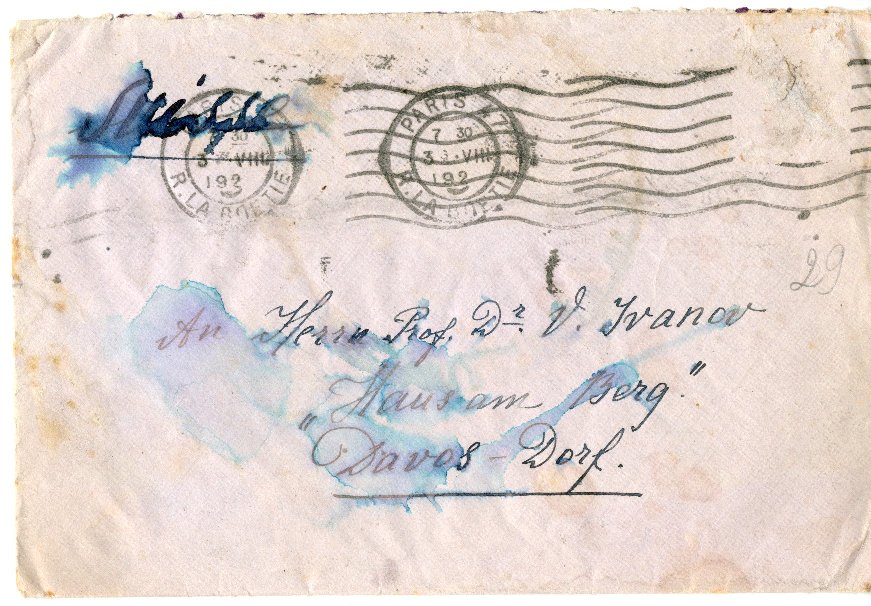 PARIS 47
7 30
3 · VIII
192
R. LA BOETIE
30
3 VIII
192
R. LA BOETIE
29
An Herrn Prof. Dr. V. Ivanov
„Haus am Berg."
Davos – Dorf.